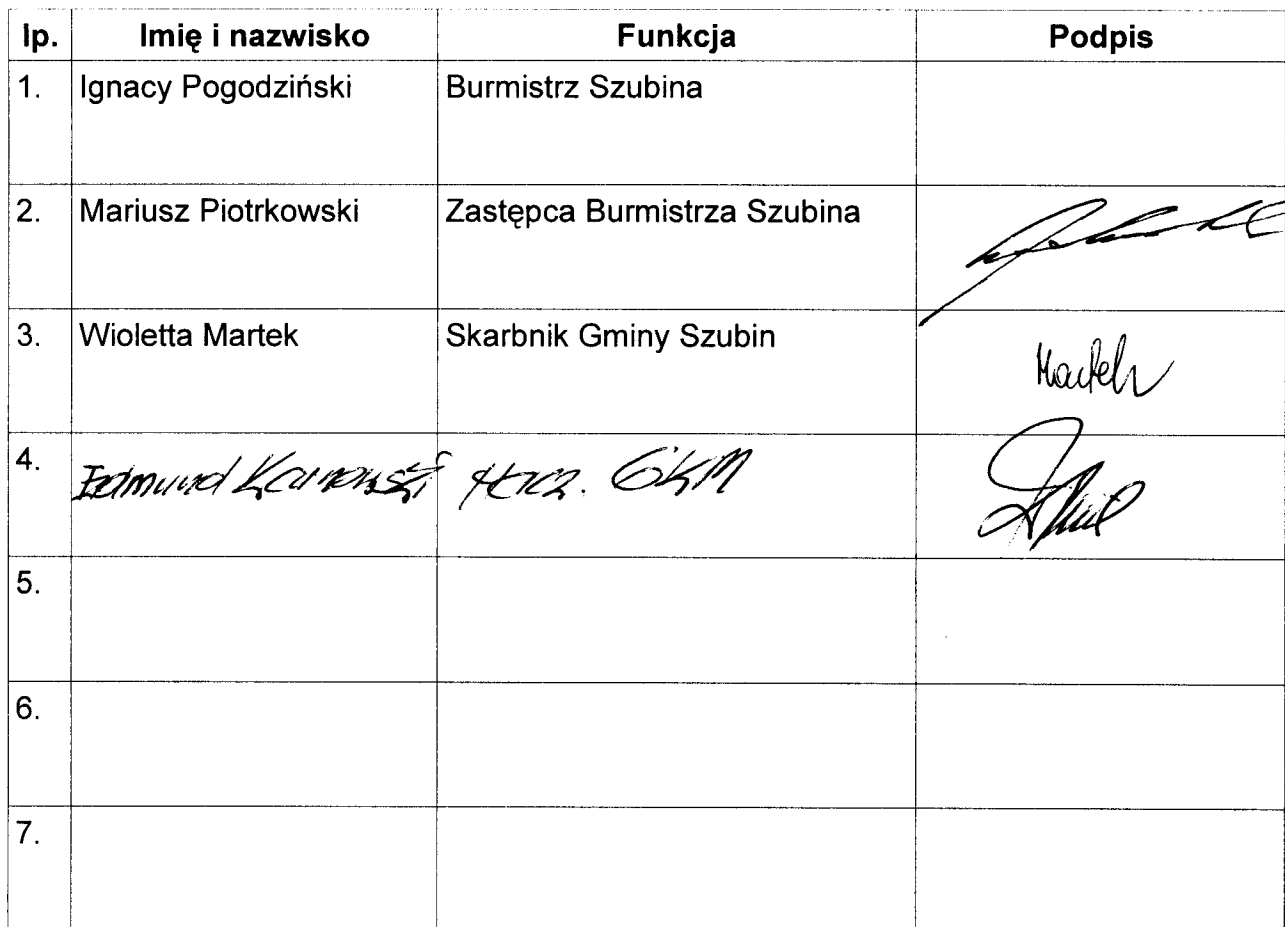 lp. Imię i nazwisko Funkcja Podpis
1. Ignacy Pogodziński Burmistrz Szubina
2. Mariusz Piotrkowski Zastępca Burmistrza Szubina
3. Wioletta Martek Skarbnik Gminy Szubin
Martek
4. Edmund GKM
5.
6.
7.